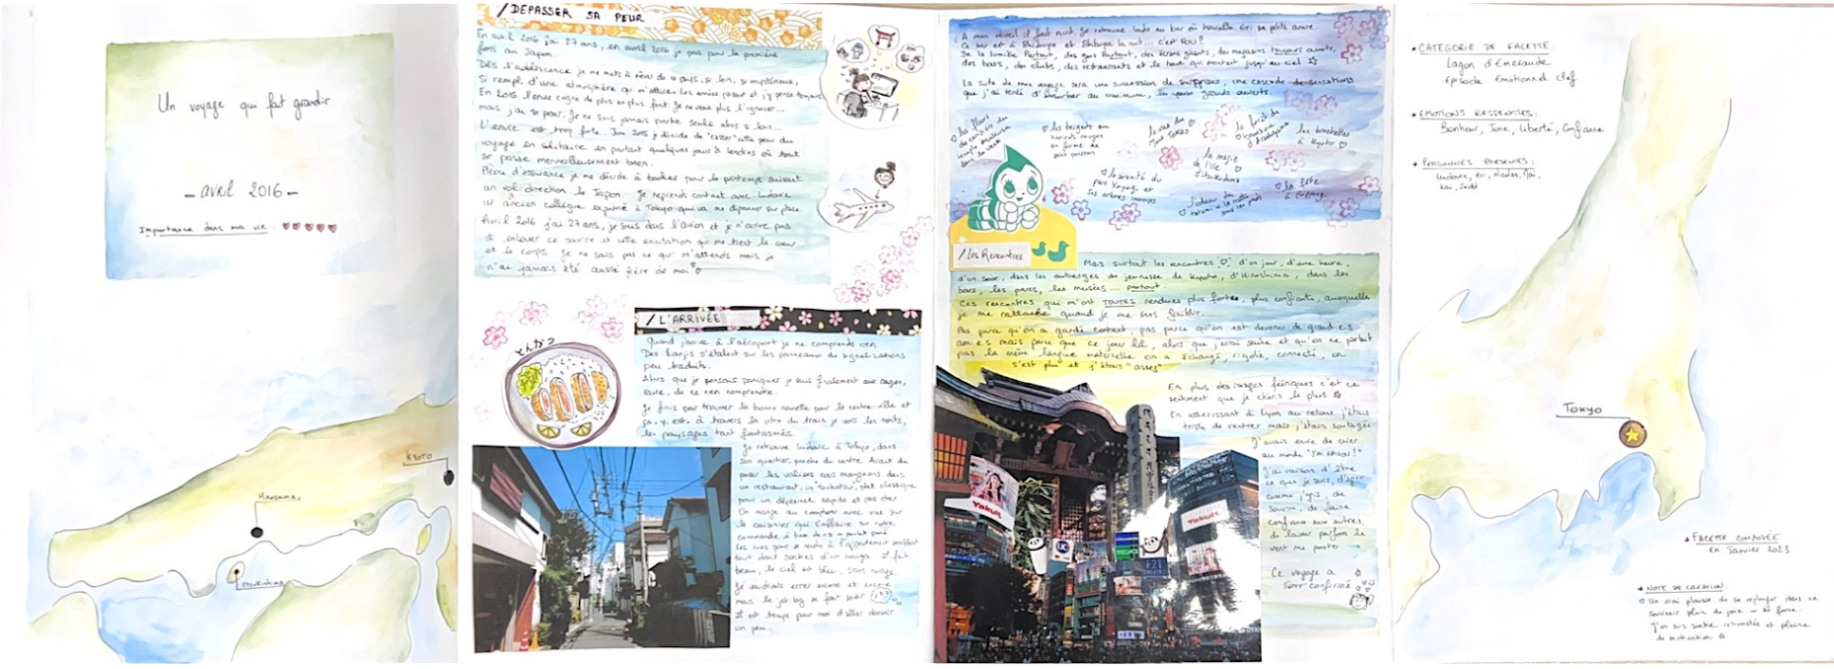 Un voyage qui fait grandir
- avril 2016 -
Importance dans ma vie :
KYOTO
/ DEPASSER SA PEUR
En avril 2016 j'ai 27 ans, en avril 2016 je pars pour la première
fois au Japon.
Dès l'adolescence je me mets à rêver de ce pays, si loin, si mystérieux,
si rempli d'une atmosphère qui m'attire. Les années passent et j'y pense toujours.
En 2015 l'envie cogne de plus en plus fort. Je ne veux plus l'ignorer...
mais j'ai si peur. Je ne suis jamais partie seule alors si loin...
L'envie est trop forte. Juin 2015 je décide de "casser" cette peur du
voyage en solitaire en partant quelques jours à Londres où tout
se passe merveilleusement bien.
Pleine d'assurance je me décide à booker pour le printemps suivant
un vol direction le Japon. Je reprends contact avec Ludovic
un ancien collègue expatrié à Tokyo qui va me dépanner sur place.
Avril 2016 j'ai 27 ans, je suis dans l'avion et je n'arrive pas
à enlever ce sourire et cette excitation qui me tient le cœur
et le corps. Je ne sais pas ce qui m'attends mais je
n'ai jamais été aussi fière de moi
/ L'ARRIVÉE
とんかつ
Quand j'arrive à l'aéroport je ne comprends rien.
Des kanjis s'étalent sur les panneaux de signalisations
peu traduits.
Alors que je pensais paniquer je suis finalement aux anges,
ravie, de ne rien comprendre.
Je finis par trouver la bonne navette pour le centre ville et
ça y est, à travers la vitre du train je vois les toits,
les paysages tant fantasmés.
Je retrouve Ludovic à Tokyo, dans
son quartier, proche du centre. Avant de
poser les valises nous mangeons dans
un restaurant, un "tonkatsu", plat classique
pour un déjeuner rapide et pas cher.
On mange au comptoir avec vue sur
le cuisinier qui s'affaire sur notre
les rues pour se rendre à l'appartement semblent
tout droit sorties d'un manga. Il fait
beau, le ciel est bleu, sans nuage.
Je voudrais errer encore et encore
mais le jet-lag se fait sentir
Il est temps pour moi d'aller dormir
un peu.
A mon réveil il fait nuit. Je retrouve Ludo au bar où travaille Eri, sa petite amie.
Ce bar est à Shibuya et Shibuya la nuit... c'est fou!
De la lumière partout, des gens partout, des écrans géants, des magasins toujours ouverts,
des bars, des clubs, des restaurants et le tout qui montent jusqu'au ciel
La suite de mon voyage sera une succession de surprises, une cascade de sensations
que j'ai tenté d'absorber au maximum, les yeux grands ouverts.
les beignets aux
haricots rouges
en forme de
petit poisson
la magie
de l'île
d'Itsukushima
/ Les Rencontres
Mais surtout les rencontres ♡ d'un jour, d'une heure,
d'un soir, dans les auberges de jeunesse de Kyoto, d'Hiroshima, dans les
bars, les parcs, les musées... partout.
Ces rencontres qui m'ont TOUTES rendues plus fortes, plus confiante, auxquelles
je me rattache quand je me sens faiblir.
Pas parce qu'on a gardé contact, pas parce qu'on est devenu de grand·e·s
ami·e·s mais parce que ce jour là, alors que j'étais seule et qu'on ne parlait
pas la même langue maternelle on a échangé, rigolé, connecté, on
s'est plu et j'étais "assez"
En plus des images féériques c'est ce
sentiment que je chéris le plus
En atterrissant à Lyon au retour j'étais
triste de rentrer mais j'étais soulagée
J'avais envie de crier
au monde "J'ai réussi!"
J'ai raison d'être
ce que je suis, d'agir
comme j'agis, de
sourire, de faire
confiance aux autres,
de laisser parfois le
vent me porter
Ce voyage a
Yakult
Yakult
CATEGORIE DE FACETTE :
Lagon d'Emeraude
Episode Emotionnel Clef
EMOTIONS RESSENTIES :
Bonheur, Joie, Liberté, Confiance
PERSONNES PRÉSENTES :
Ludovic, Eri, Nicolas, Mai,
TOKYO
FACETTE COMPOSÉE
en Janvier 2023
NOTE DE CREATION :
Un vrai plaisir de se replonger dans ce
souvenir plein de joie et de force.
J'en suis sortie reboostée et pleine
de motivation